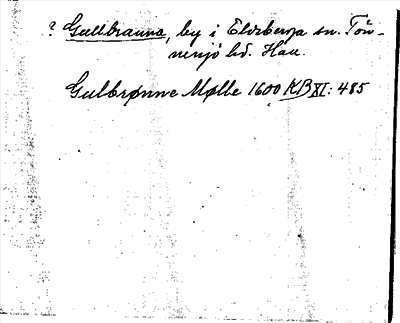 ? Gullbranna, by i Eldsberga sn. Tön-
nersjö hd. Hall.
Gulbrønne Mølle 1600 KB XI: 485